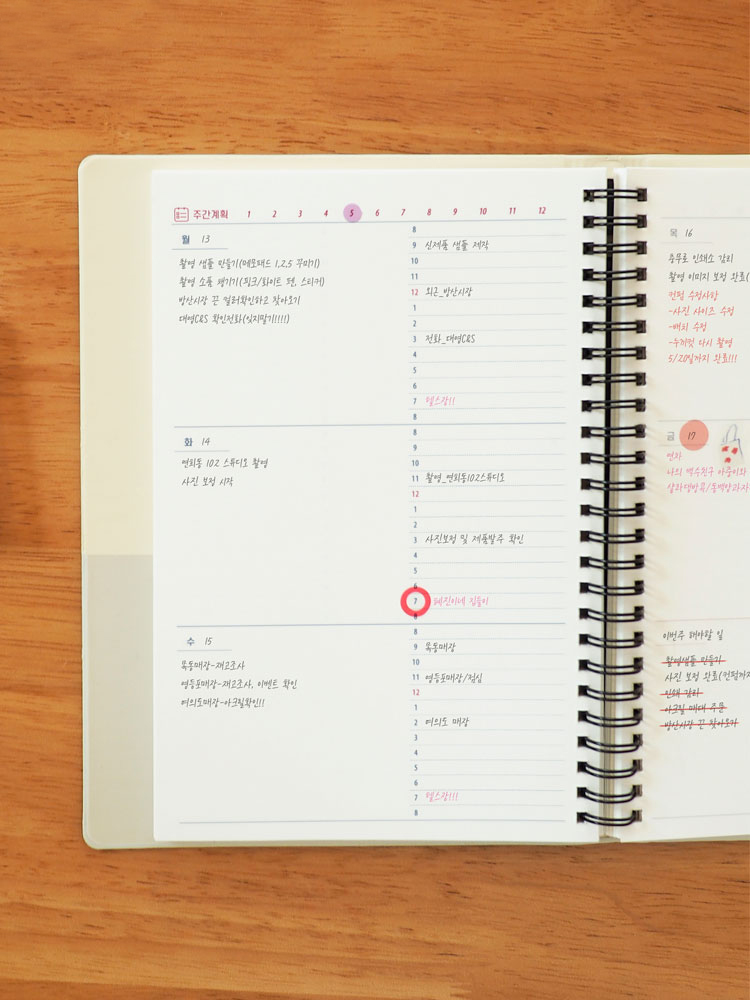 주간계획 1 2 3 4 5 6 7 8 9 10 11 12
월 13
촬영 샘플 만들기(메모패드 1,2,5 꾸미기)
촬영 소품 챙기기(핑크/화이트 펜, 스티커)
방산시장 끈 컬러확인하고 찾아오기
대영C&S 확인전화(잊지말기!!!!)
8
9 신제품 샘플 제작
10
11
12 외근_방산시장
1
2
3 전화_대영C&S
4
5
6
7 헬스장!!
8
화 14
연희동 102 스튜디오 촬영
사진 보정 시작
8
9
10
11 촬영_연희동102스튜디오
12
1
2
3 사진보정 및 제품발주 확인
4
5
6
7 혜진이네 집들이
8
수 15
목동매장-재고조사
영등포매장-재고조사, 이벤트 확인
여의도매장-아크릴확인!!
8
9 목동매장
10
11 영등포매장/점심
12
1
2 여의도 매장
3
4
5
6
7 헬스장!!!
8
목 16
충무로 인쇄소 감리
촬영 이미지 보정 완료(
컨펌 수정사항
-사진 사이즈 수정
-배치 수정
-누끼컷 다시 촬영
5/20일까지 완료!!!
금 17
연차
나의 백수친구 아중이와
이번주 해야할 일
촬영샘플 만들기
사진 보정 완료(컨펌까지
인쇄 감리
아크릴 매대 주문
방산시장 끈 찾아오기